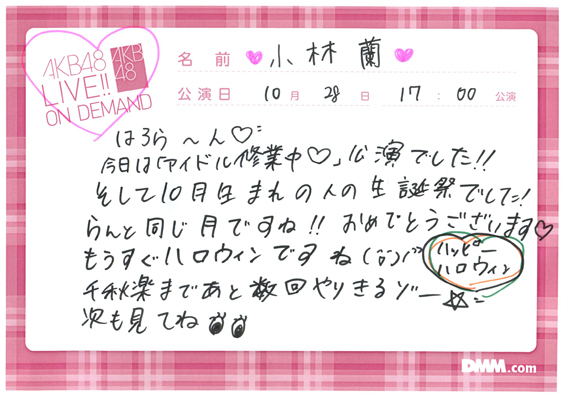 AKB48
LIVE!!
ON DEMAND
AKB
48
名前 ♥小林 蘭♥
公演日 10月 28日 17:00 公演
はろら〜ん♡
今日は「アイドル修業中♡」公演でした!!
そして10月生まれの人の生誕祭でした!
らんと同じ月ですね!! おめでとうございます♡
もうすぐハロウィンですね
ハッピー
ハロウィン
千秋楽まであと数回やりきるゾー☆
次も見てね
DMM.com